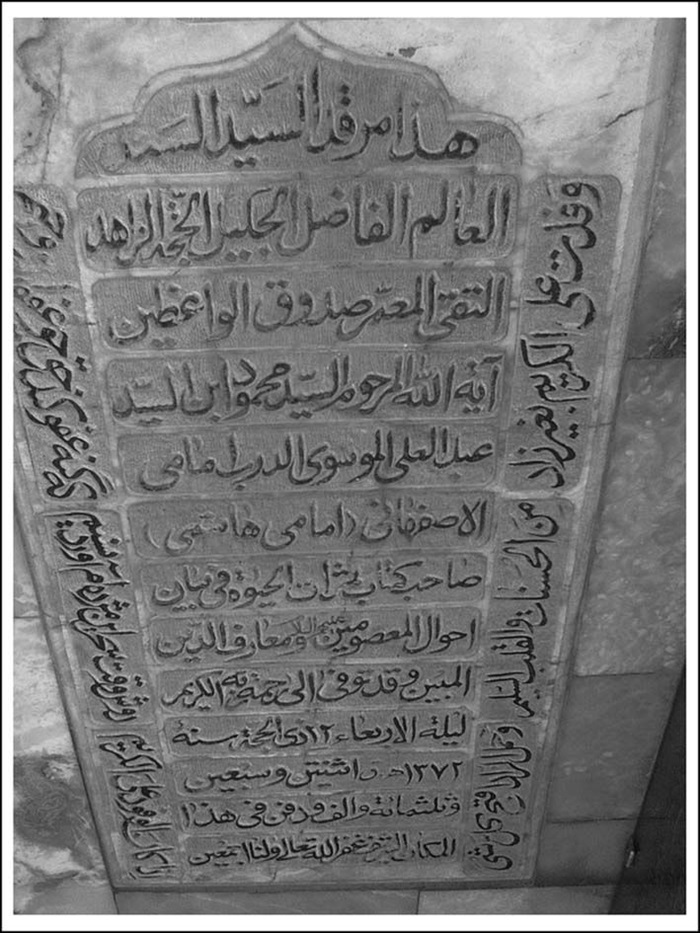 هذا مرقد السيد السند
العالم الفاضل الجليل الحجة الزاهد
التقي المعمر صدوق الواعظين
آية الله المرحوم السيد محمود ابن السيد
عبد العلي الموسوي الدرب امامي
الاصفهاني (امامي هاشمي)
صاحب كتاب ثمرات الحيوة في بيان
احوال المعصومين عليهم السلام ومعارف الدين
المبين وقد توفي الى رحمة ربه الكريم
ليلة الاربعاء ١٢ ذي الحجة سنة
١٣٧٢ه‍ ق اثنتين وسبعين
وثلثمائة والف ودفن في هذا
المكان الشريف غفر الله تعالى له ولنا اجمعين
وفدت على الكريم بغير زاد
من الحسنات والقلب السليم
وحمل الزاد اقبح كل شيء
اذا كان الوفود على الكريم